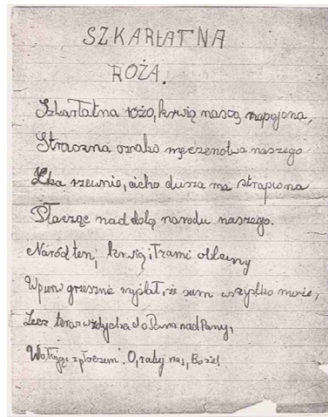 SZKARŁATNA
RÓŻA.
Szkarłatna różo, krwią naszą napojona,
Straczna oznako męczeństwa naszego
Łka rzewnie, cicho dusza ma strapiona
Płacząc nad dolą narodu naszego.
Naród ten, krwią i łzami oblany
Wpierw grzesznie myślał, że sam wszystko może,
Lecz teraz wzdycha do Pana nad Pany,
Wołając z płaczem: O, ratuj nas, Boże!